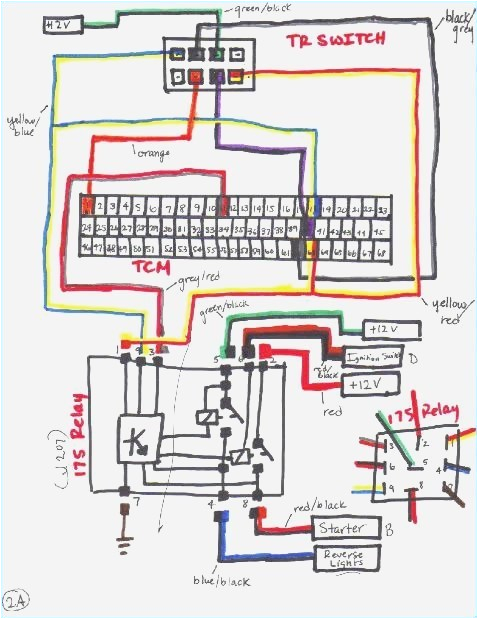 green/black
+12V
TR SWITCH
black/grey
yellow/blue
orange
2 3 4 5 6 7 8 9 10 12 13 14 15 16 19 20 21 22 23
24 25 26 27 28 29 30 31 32 33 34 35 36 37 38 39 41 42 43 44 45
46 47 48 49 50 51 52 53 54 55 57 58 59 60 61 65 66 67 68
TCM
grey/red
yellow/red
green/black
+12V
1 9 3 5 6 2
Ignition Switch D
red/black
+12V
red
175 Relay
(J207)
K
175 Relay
3 2
6 5 4
9 8
7 4 8
red/black
Starter B
Reverse Lights
blue/black
2A